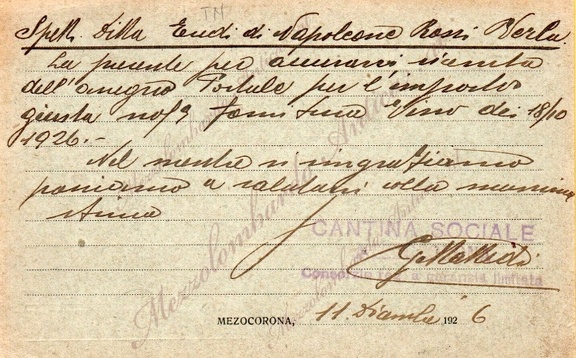 TN
Spett. Ditta Eredi di Napoleone Rossi Verla.
La presente per accusarvi ricevuta
dell'assegno Postale per l'importo
giusta nos/a fornitura Vino dei 18/10
1926.-
Nel mentre vi ringraziamo
passiamo a salutarvi colla massima
stima
CANTINA SOCIALE
Mezzolombardo
G. Matteotti
limitata
MEZOCORONA, 11 Dicembre 1926